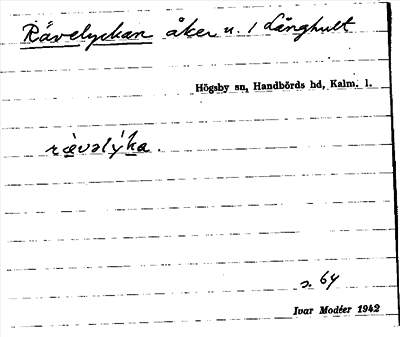 Rävelyckan åker u. 1 Långhult
Högsby sn, Handbörds hd, Kalm. l.
rævəlýka.
s. 64
Ivar Modéer 1942